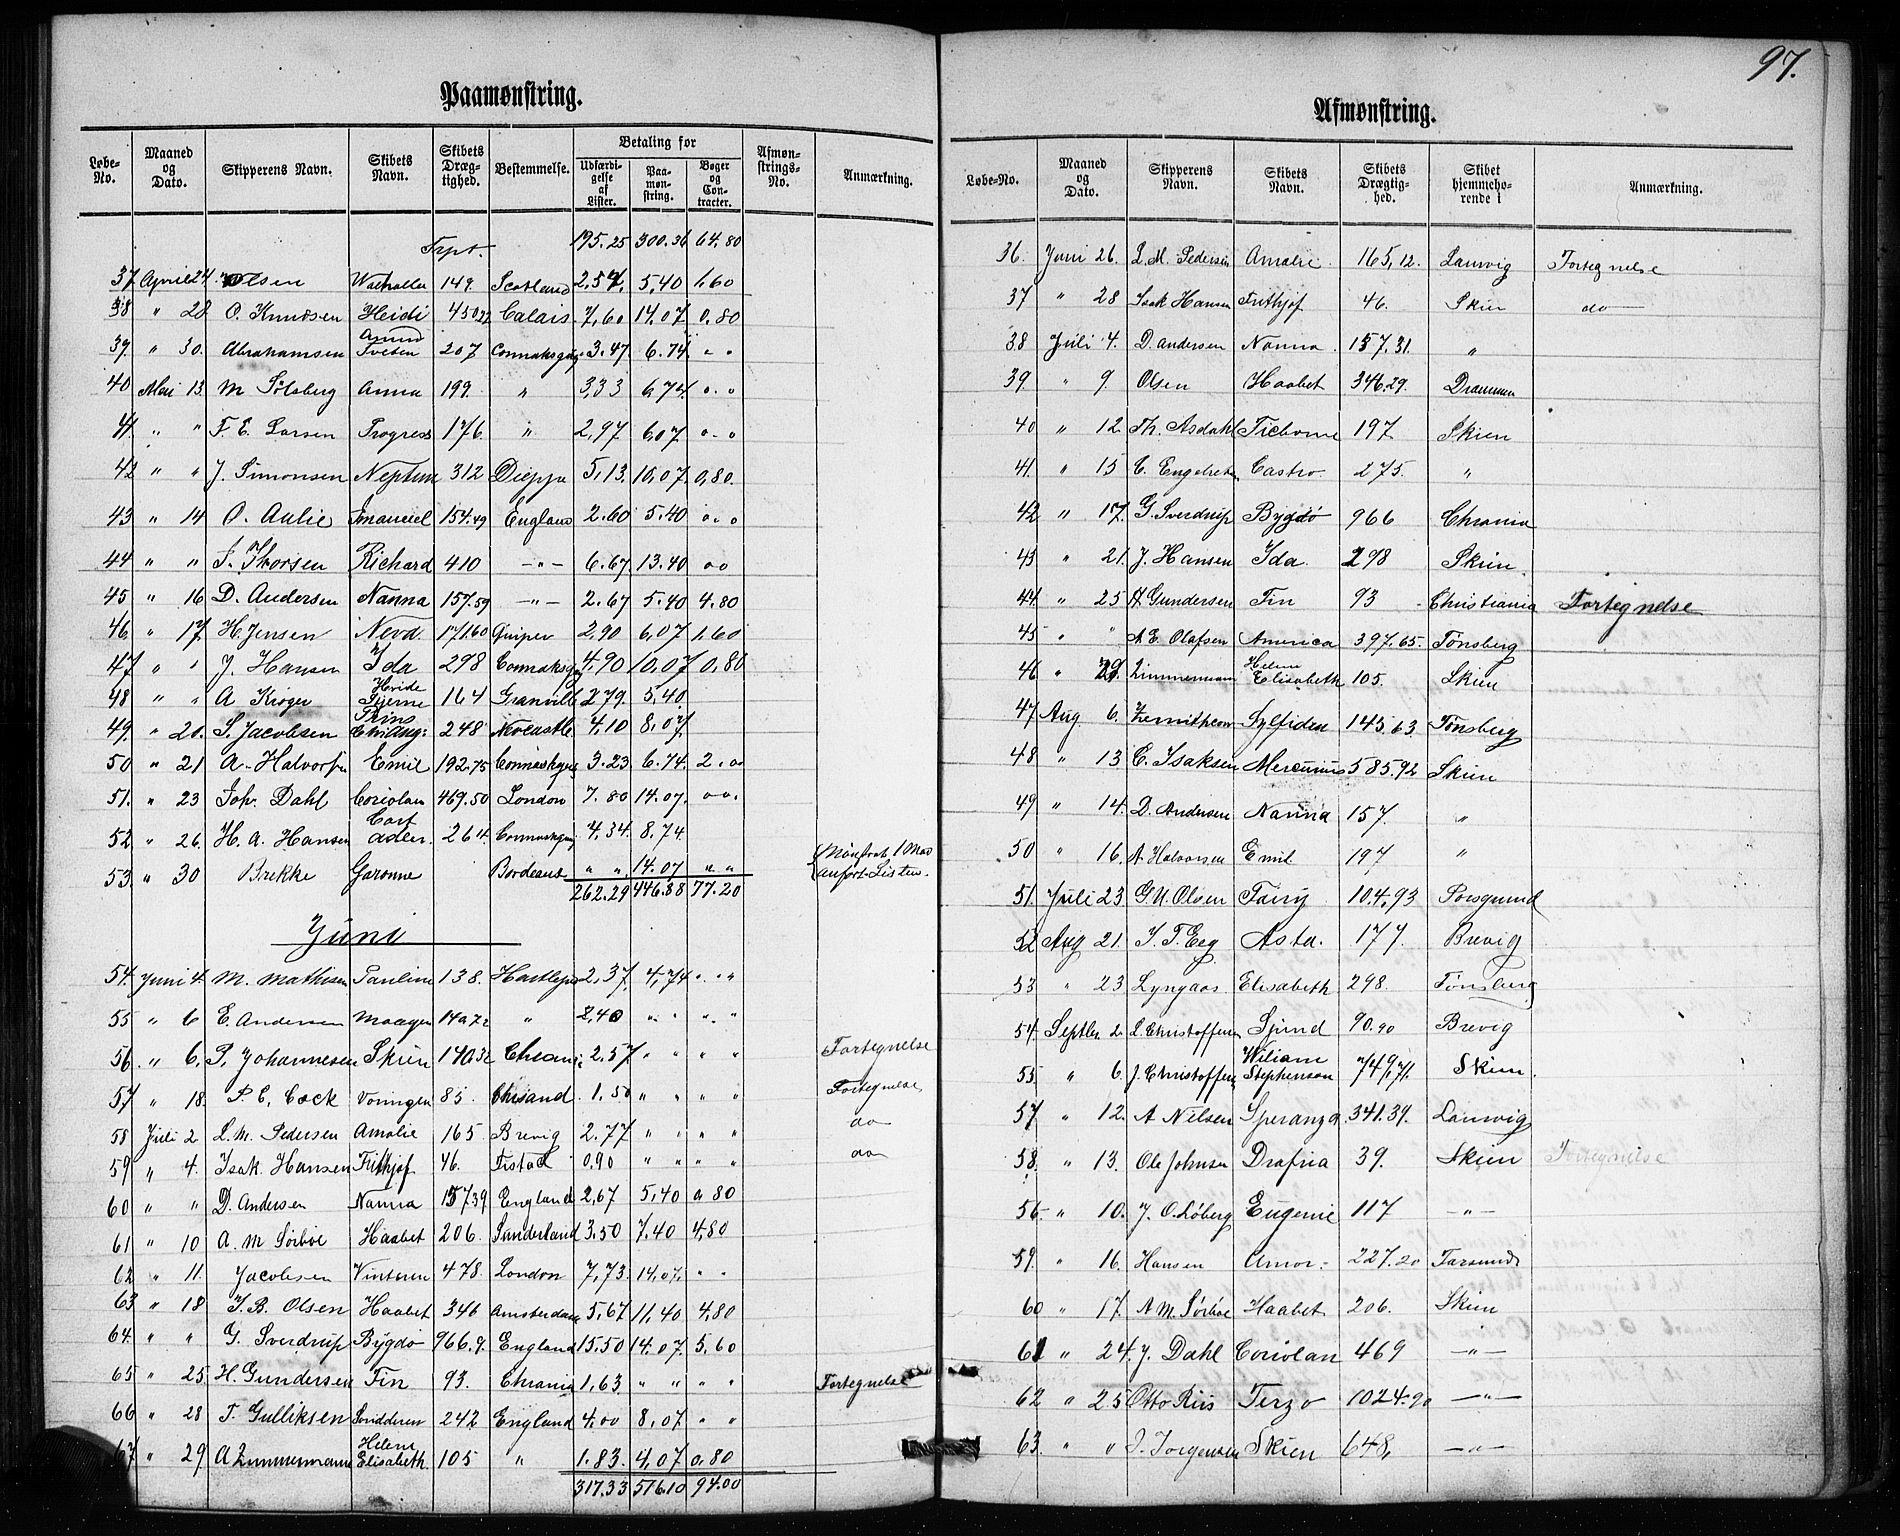 97.
Paamønstring.
Løbe-No. Maaned og Dato. Skipperens Navn. Skibets Navn. Skibets Drægtighed. Bestemmelse. Betaling for Udfærdigelse af Lister. Paamønstring. Bøger og Contracter. Afmønstrings-No. Anmærkning.
Trpt. 195.25 300.36 64.80
37 April 24 Olsen Walhalla 149. Scotland 2,57. 5,40 1,60
38 " 28 O. Knudsen Heidi 450 Calais 7,60 14,07 0.80
39. " 30. Abrahamsen Amund Tvesen 207 3.47 6.74 " "
40 Mai 13 M Solsberg Anna 199. " 3,33 6,74. " "
41. " " F. E. Larsen Progress 176. " 2,97 6,07 " "
42 " " J. Simonsen Neptun 312 Dieppe 5,13. 10,07 0,80.
43 " 14 O. Aalie Emanuel 154.49 England 2.60 5.40 " "
44 " " J. Thorsen Richard 410 -"- 6.67 13.40 " "
45 " 16 D. Andersen Nanna 157.59 -"- 2.67 5.40 4.80
46 " 17 H. Jensen Nerd 171.60 Quiper 2,90 6,07 1,60
47 " " J. Hansen Ida 298 4,90 10,07 0,80
48 " " A Krøger Hvide Stjerne 164 Granville 279. 5,40
49. " 20. S. Jacobsen Prins Chr.Aug: 248 Newcastle 4,10 8,07
50 " 21 A. Halvorsen Emil 192.75 3.23. 6.74.
51. " 23 Joh. Dahl Coriolan 469.50 London 7.80 14.07. " "
52 " 26. H. A. Hansen Cort Adler. 264. 4,34. 8.74
53. " 30 Brekke Garonne Bordeaux " " 14.07 " " Mønstret 1 Mand
262.29 446.38 77.20
Juni
54. Juni 4. M. Mathisen Pauline 138. Hartlepool 2,37. 4,74 " "
55 " 6 E. Andersen Maagen 140 " 2,40 " " " "
56. " 6. P. Johannesen Skien 140.32 Chrania 2.57 " " " " Fortegnelse
57 " 18. P. C. Cock Voringen 85 Chrsand 1.50 " " " " Fortegnelse
58 Juli 2 L. M. Pedersen Amalie 165. Brevig 2.77 " " " " do
59 " 4. Isak Hansen Frithjof 46. 0.90 " " " " do
60 " " D. Andersen Nanna 157.39 England 2,67 5,40 0.80
61 " 10 A. M Sørbøe Haabet 206. Sunderland 3.50 7.40 4,80
62 " 11. Jacobsen Vinteren 478. London 7,73. 14,07. " "
63 " 18 J. B. Olsen Haabet 346 Amsterdam 5,67 11,40 4,80
64. " " G. Sverdrup Bygdø 966.9. England 15.50 14.07. 5,60
65 " 25 H. Gundersen Fin 93. Chrania 1,63 " " " " Fortegnelse
66 " 28 T. Gulliksen 242 England 4.00 8,07 " "
67 " 29 A Zimmermann Helene Elisabeth. 105 " 1.83. 4,07 0,80
317.33 516.10 94.00
Afmønstring.
Løbe-No. Maaned og Dato. Skipperens Navn. Skibets Navn. Skibets Drægtighed. Skibet hjemmehørende i Anmærkning.
36. Juni 26. L. M. Pedersen Amalie. 165,12. Laurvig Fortegnelse
37 " 28 Isak Hansen Frithjof 46. Skien do
38 Juli 4. D. Andersen Nanna. 157.31. "
39 " 9. Olsen Haabet 346.29. Drammen
40 " 12. Th. Asdahl Tichborne 197. Skien
41. " 15 C. Engebretsen Castro. 275. "
42 " 17. G. Sverdrup Bygdø 966 Chrania
43 " 21. J. Hansen Ida 298 Skien
44. " 25 H Gundersen Fin 93 Christiania Fortegnelse
45 " " A. E. Olafsen America 397,65. Tønsberg
46 " 29. Zimmermann Helene Elisabeth 105. Skien
47 Aug 6. Sylfiden 145.63 Tønsberg
48 " 13 C. Isaksen Mercurius 585.92 Skien
49 " 14. D. Andersen Nanna 157. "
50 " 16. A Halvorsen Emil 197 "
51. Juli 23 G. U. Olsen Fairy 104,93 Porsgrund
52 Aug 21. J. T. Eeg Asta. 177. Brevig
53 " 23 Lyngaas Elisabeth 298. Tønsberg
54. Septbr. 2. L. Christoffersen Sjund 90.90 Brevig
55 " 6. J. Christoffersen William Stephenson 749,71. Skien.
57 " 12. A Nilsen Speranza 341.39. Laurvig
58. " 13. Ole Johnsen Drafna 39. Skien Fortegnelse
56- " 10. J. O. Løberg Eugenie 117 -"-
59. " 16. Hansen Amor. 227.20 Farsund
60 " 17. A M. Sørbøe Haabet 206. Skien
61 " 24. J. Dahl Coriolan 469 -"-
62 " 25 Otto Riis Terzo 1024.90 -"-
63. " " J. Jorgensen Skien 648, -"-